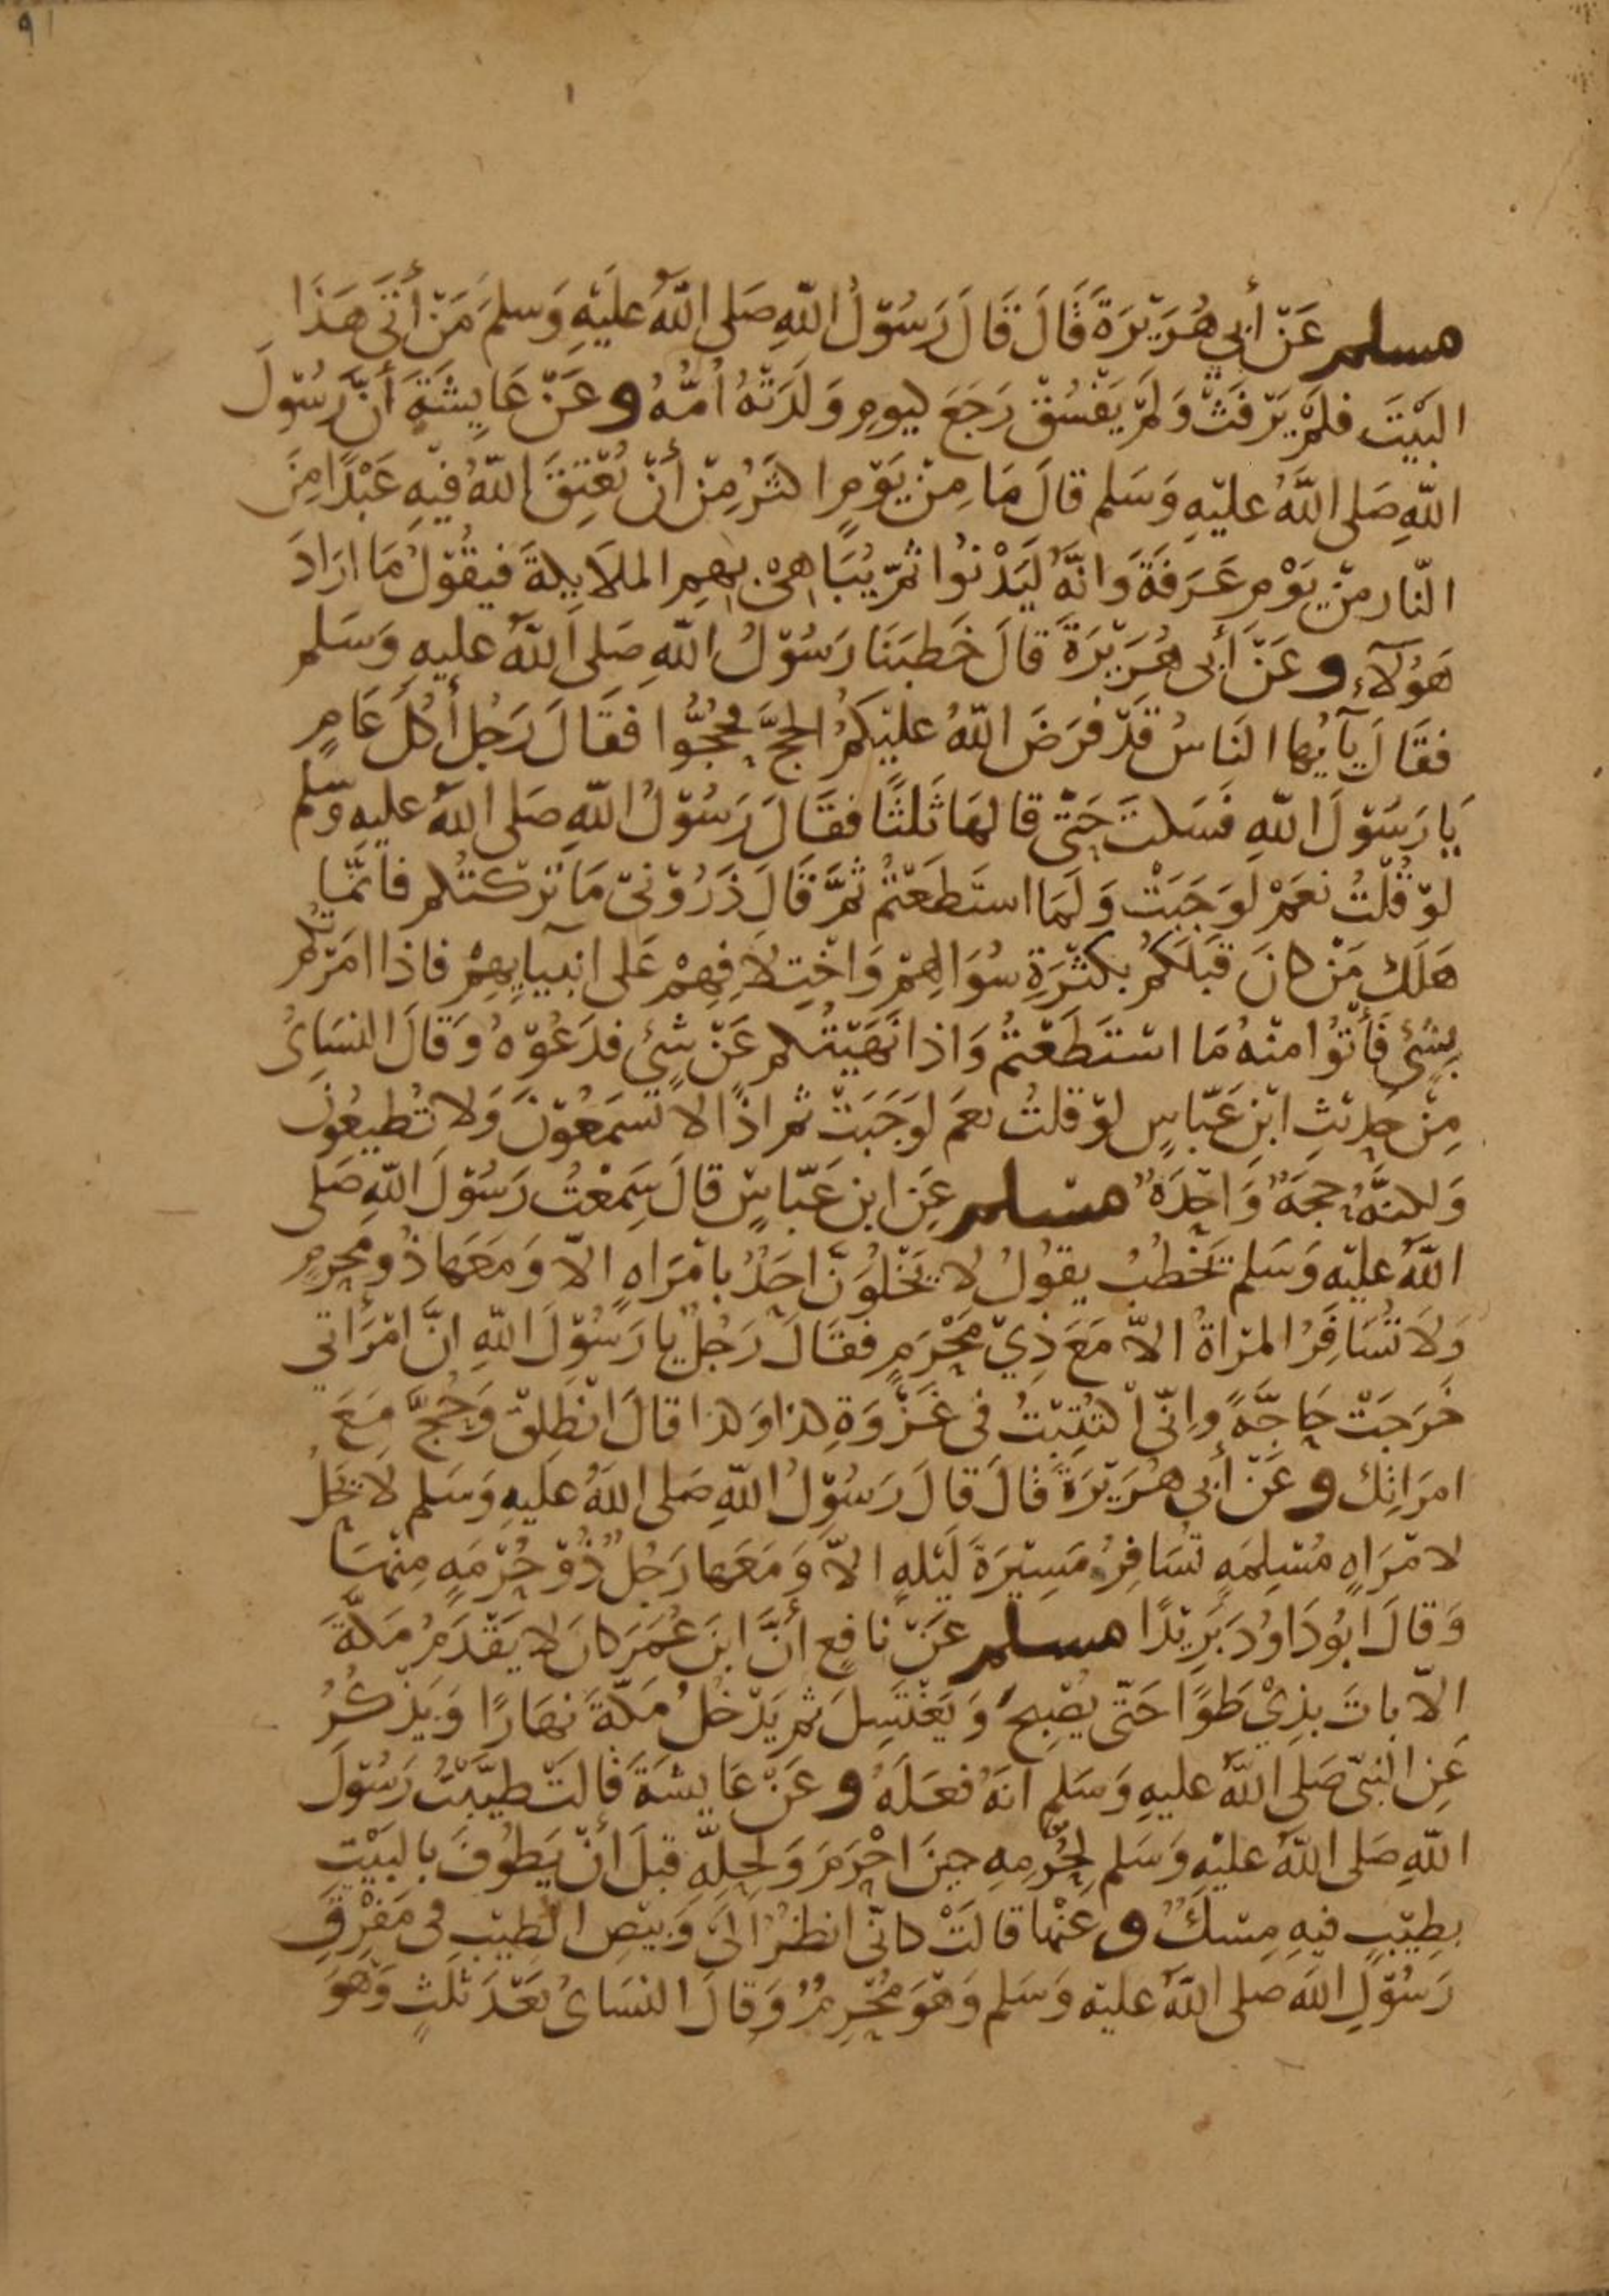 ٩١
مسلم عَنْ أَبِي هُرَيْرَةَ قَالَ قَالَ رَسُوْلُ اللّهِ صَلى اللَّهُ عَليْهِ وَسَلمَ مَنْ أَتَى هَذَا
البَيْتَ فلَمْ يَرْفثْ وَلَمْ يَفْسُقْ رَجَعَ ليومِ وَلَدَتْهُ أُمُّهُ وعَنْ عَايِشَةَ أَنَّ رَسُوْلَ
اللّهِ صَلى اللَّهُ عليْهِ وَسَلم قالَ مَا مِنْ يَوْمٍ اكثَرُ مِنْ أَنْ يُعْتِقَ اللّهُ فيْهِ عَبْدًا مِنَ
النّار مِنْ يَوْمِ عَرَفَةَ وَانَّهُ ليَدْنُوا ثمّ يُبَاهِىْ بِهِم الملاَيِكةَ فيقُوْلُ مَا ارَادَ
هَؤُلآءِ وعَنْ أَبى هُرَيْرَةَ قالَ خَطبَنَا رَسُوْلُ اللّهِ صَلى اَللّهُ عليهِ وَسَلم
فقَالَ يآيُها النَاسُ قَدْ فرَضَ اللّهُ عليْكمُ الحَجَّ فحُجُّوا فقَالَ رَجُل أَكُلَ عَامٍ
يَا رَسَوْلَ اللّهِ فَسَكتَ حَتّى قالهَا ثَلثًا فقَالَ رَسُوْلُ اللّهِ صَلى اللهُ عليهِ وَسّلم
لوْ قُلْتُ نعَمْ لوَجَبَتْ وَلَمَا استَطَعْتمْ ثمَّ قَالَ ذَرُوْنىْ مَا تَرَكتُكم فانمَّا
هَلَكَ مَنْ كانَ قبَلكمُ بكثْرَةِ سُوَالِهِمْ وَاخْتِلاَفِهِمْ عَلى انبيآيِهِمْ فاذا امَرْتُكُم
بِشَئٍ فَأتُوْا منْهُ مَا اسْتَطَعْتمُ وَاذا نَهَيْتُكم عَنْ شئٍ فدَعُوْهُ وَقَالَ النسَاىُ
مِنْ حَدِيْثِ ابْنِ عَبّاسٍ لوْ قلتُ نعَم لوَجَبَتْ ثم اذًا لا تَسمَعُوْنَ وَلا تُطيعُونَ
وَلكنَّهُ حجةٌ وَاحِدَةٌ مسلم عَنِ ابن عَبّاسٍ قالَ سَمِعْتُ رَسُوْلَ اللّهِ صَلى
اللّهُ عليْه وَسَلم يَخْطبُ يقوُلُ لا يَخْلُوَنَّ احَدٌ بامْرَاهٍ الاّ وَمَعَها ذُو محرمٍ
وَلاَ تُسَافِرُ المرْاةُ الاّ مَعَ ذِيْ مَحْرَمٍ فقَالَ رَجُلٌ يا رَسُوْلَ اللّهِ انَّ امْرَأتي
خرَجَتْ حَاجَّةً وانِّى اُكتُتِبْتُ فى غَزْوَةِ كذا وَكذا قالَ انْطِلقْ وَحُجَّ مَعَ
امرَاتِكَ وعَنْ أَبى هُرَيْرَةَ قَالَ قالَ رَسُوْلُ اللّهِ صَلى اللهُ عَليهِ وَسَلم لاَ يَحلُ
لامْرَاةٍ مُسْلِمَةٍ تسَافِرُ مَسِيْرَةَ لَيْلهٍ الاّ وَمَعَها رَجُلٌ ذُوْ حُرْمَةٍ مِنْهَا
وَقالَ أَبُو دَاوُدَ بَرِيْدًا مسلم عَنْ نافِعٍ أَنَّ ابنَ عُمَرَ كانَ لا يَقْدَمُ مَكّةَ
الاّ باتَ بذِيْ طَوًا حَتّى يُصْبِحَ وَيَغْتسِلَ ثم يَدْخُلُ مَكّةَ نهَارًا وَيَذْكُرُ
عَنِ النبّى صَلى اللّهُ عليهِ وَسَلم أنهُ فعَلَهُ وعَنْ عَايشَةَ قَالتْ طيَّبْتُ رَسُوْلَ
اللّهِ صَلى اللّهُ عليْهِ وَسَلم لحُرْمِهِ حِينَ احْرَمَ وَلحِلِّهِ قبلَ أَنْ يَطُوفَ بالبَيْتِ
بطِيْبٍ فيهِ مِسْكٌ وعَنْها قالَتْ كانّى انظرُ الىَ وَبيْصِ الطِيْبِ فى مَفْرِقِ
رَسُوْلِ الله صلى اللّهُ عليْه وَسَلم وَهوَ مُحْرِمٌ وَقالَ النسَاىُ بَعْدَ ثلثٍ وَهُوَ